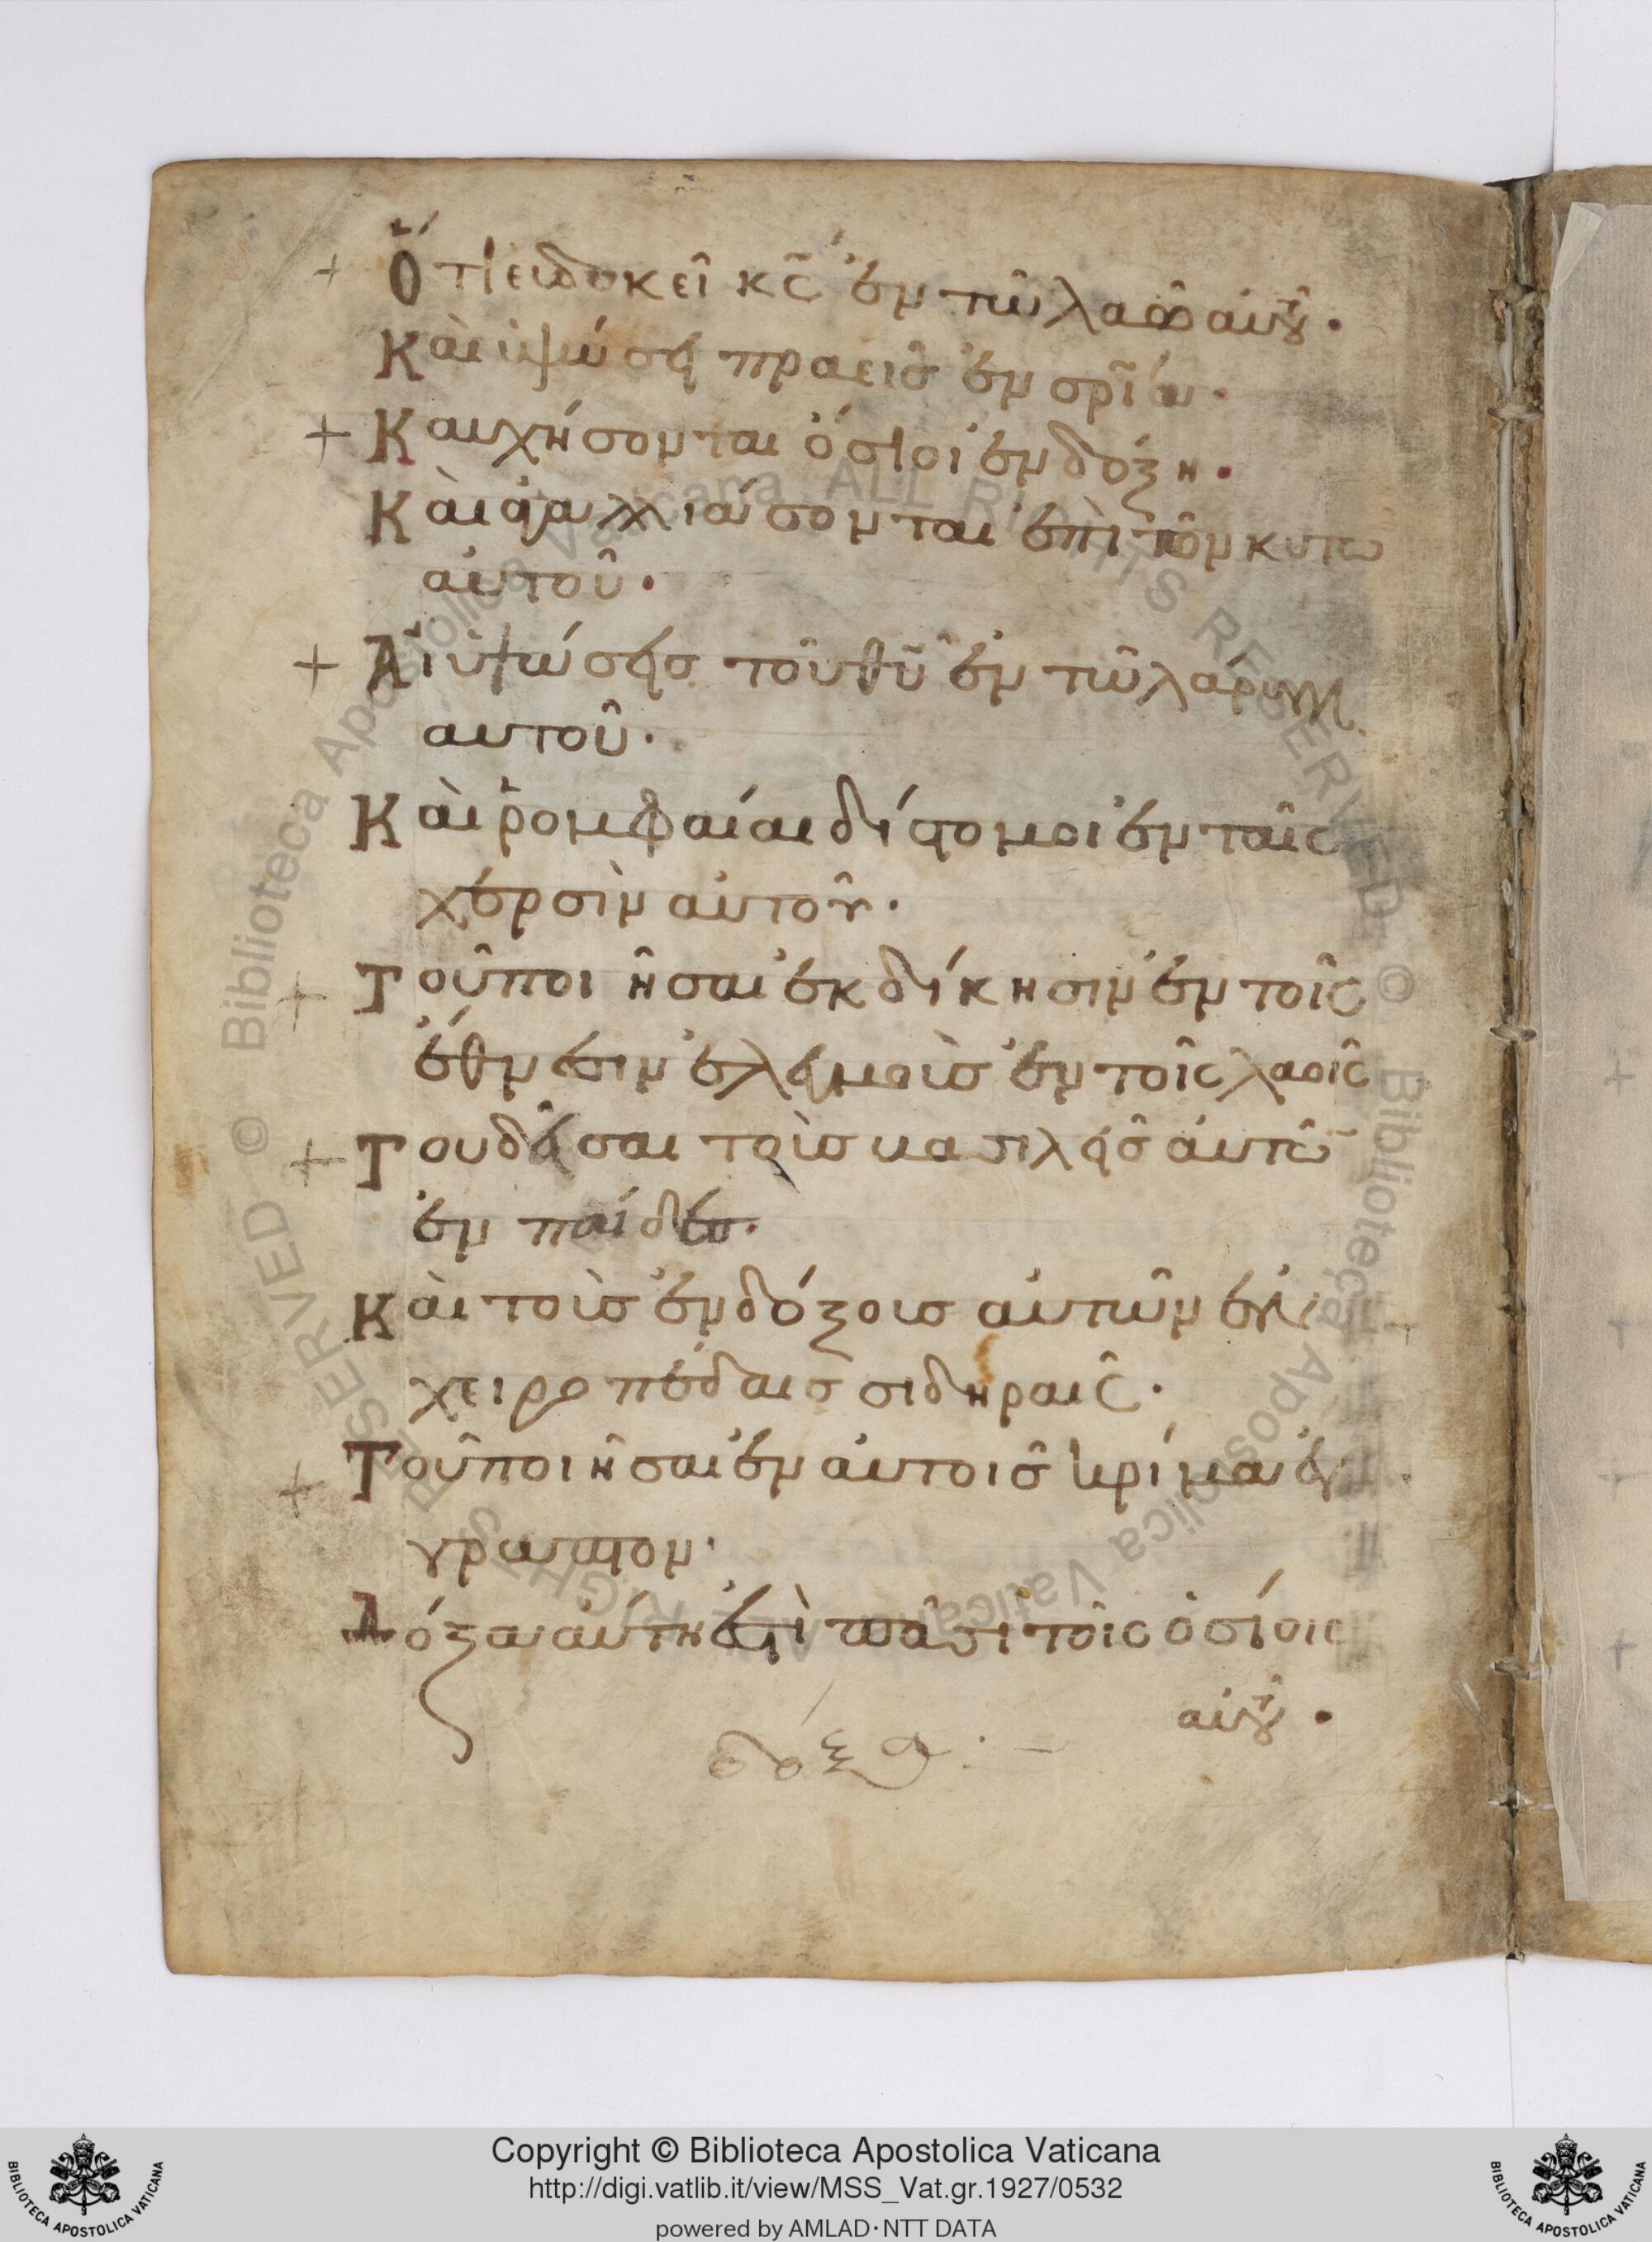 + Ὅτι εὐδοκεῖ κ̅ς̅ ἐν τῶ λαῶ αὐτοῦ·
Καὶ ὑψώσει πραεῖς ἐν σρ̅ία·
+ Καυχήσονται ὅσιοι ἐν δόξη·
Καὶ ἀγαλλιάσονται ἐπὶ τῶν κοιτῶ
αὐτοῦ·
+ Αἱ ὑψώσεις τοῦ θ̅υ̅ ἐν τῶ λάρυγγι
αυτοῦ·
Καὶ ῥομφαίαι δίστομοι ἐν ταῖς
χερσὶν αὐτοῦ·
+ Τοῦ ποιῆσαι ἐκδίκησιν ἐν τοῖς
ἔθνεσιν ἐλεγμοὺς ἐν τοῖς λαοῖς
+ Του δῆσαι τοὺς βασιλεῖς αὐτῶ
ἐν πέδες·
Καὶ τοὺς ἐνδόξους αὐτῶν ἐν
χειροπέδαις σιδηραῖς·
+ Τοῦ ποιῆσαι ἐν αὐτοῖς κρίμα ἔγ
γραπτον·
Δόξα αὕτη ἐστὶ πᾶσι τοῖς ὁσίοις
αὐτοῦ·
δόξα :—
Copyright © Biblioteca Apostolica Vaticana
http://digi.vatlib.it/view/MSS_Vat.gr.1927/0532
powered by AMLAD·NTT DATA
BIBLIOTECA APOSTOLICA VATICANA
BIBLIOTECA APOSTOLICA VATICANA